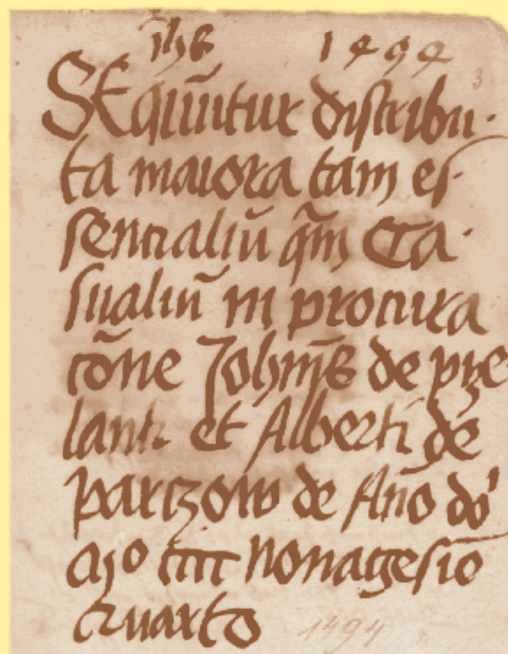 ihs 1494
SEquūtur distribu
ta maiora tam es
sentialiū q̄m Ca
sualiū in procura
cōne Johīs de pre
lanti et Alberti de
parizoto de Año do
Mo cccc nonagesīo
quarto
1494